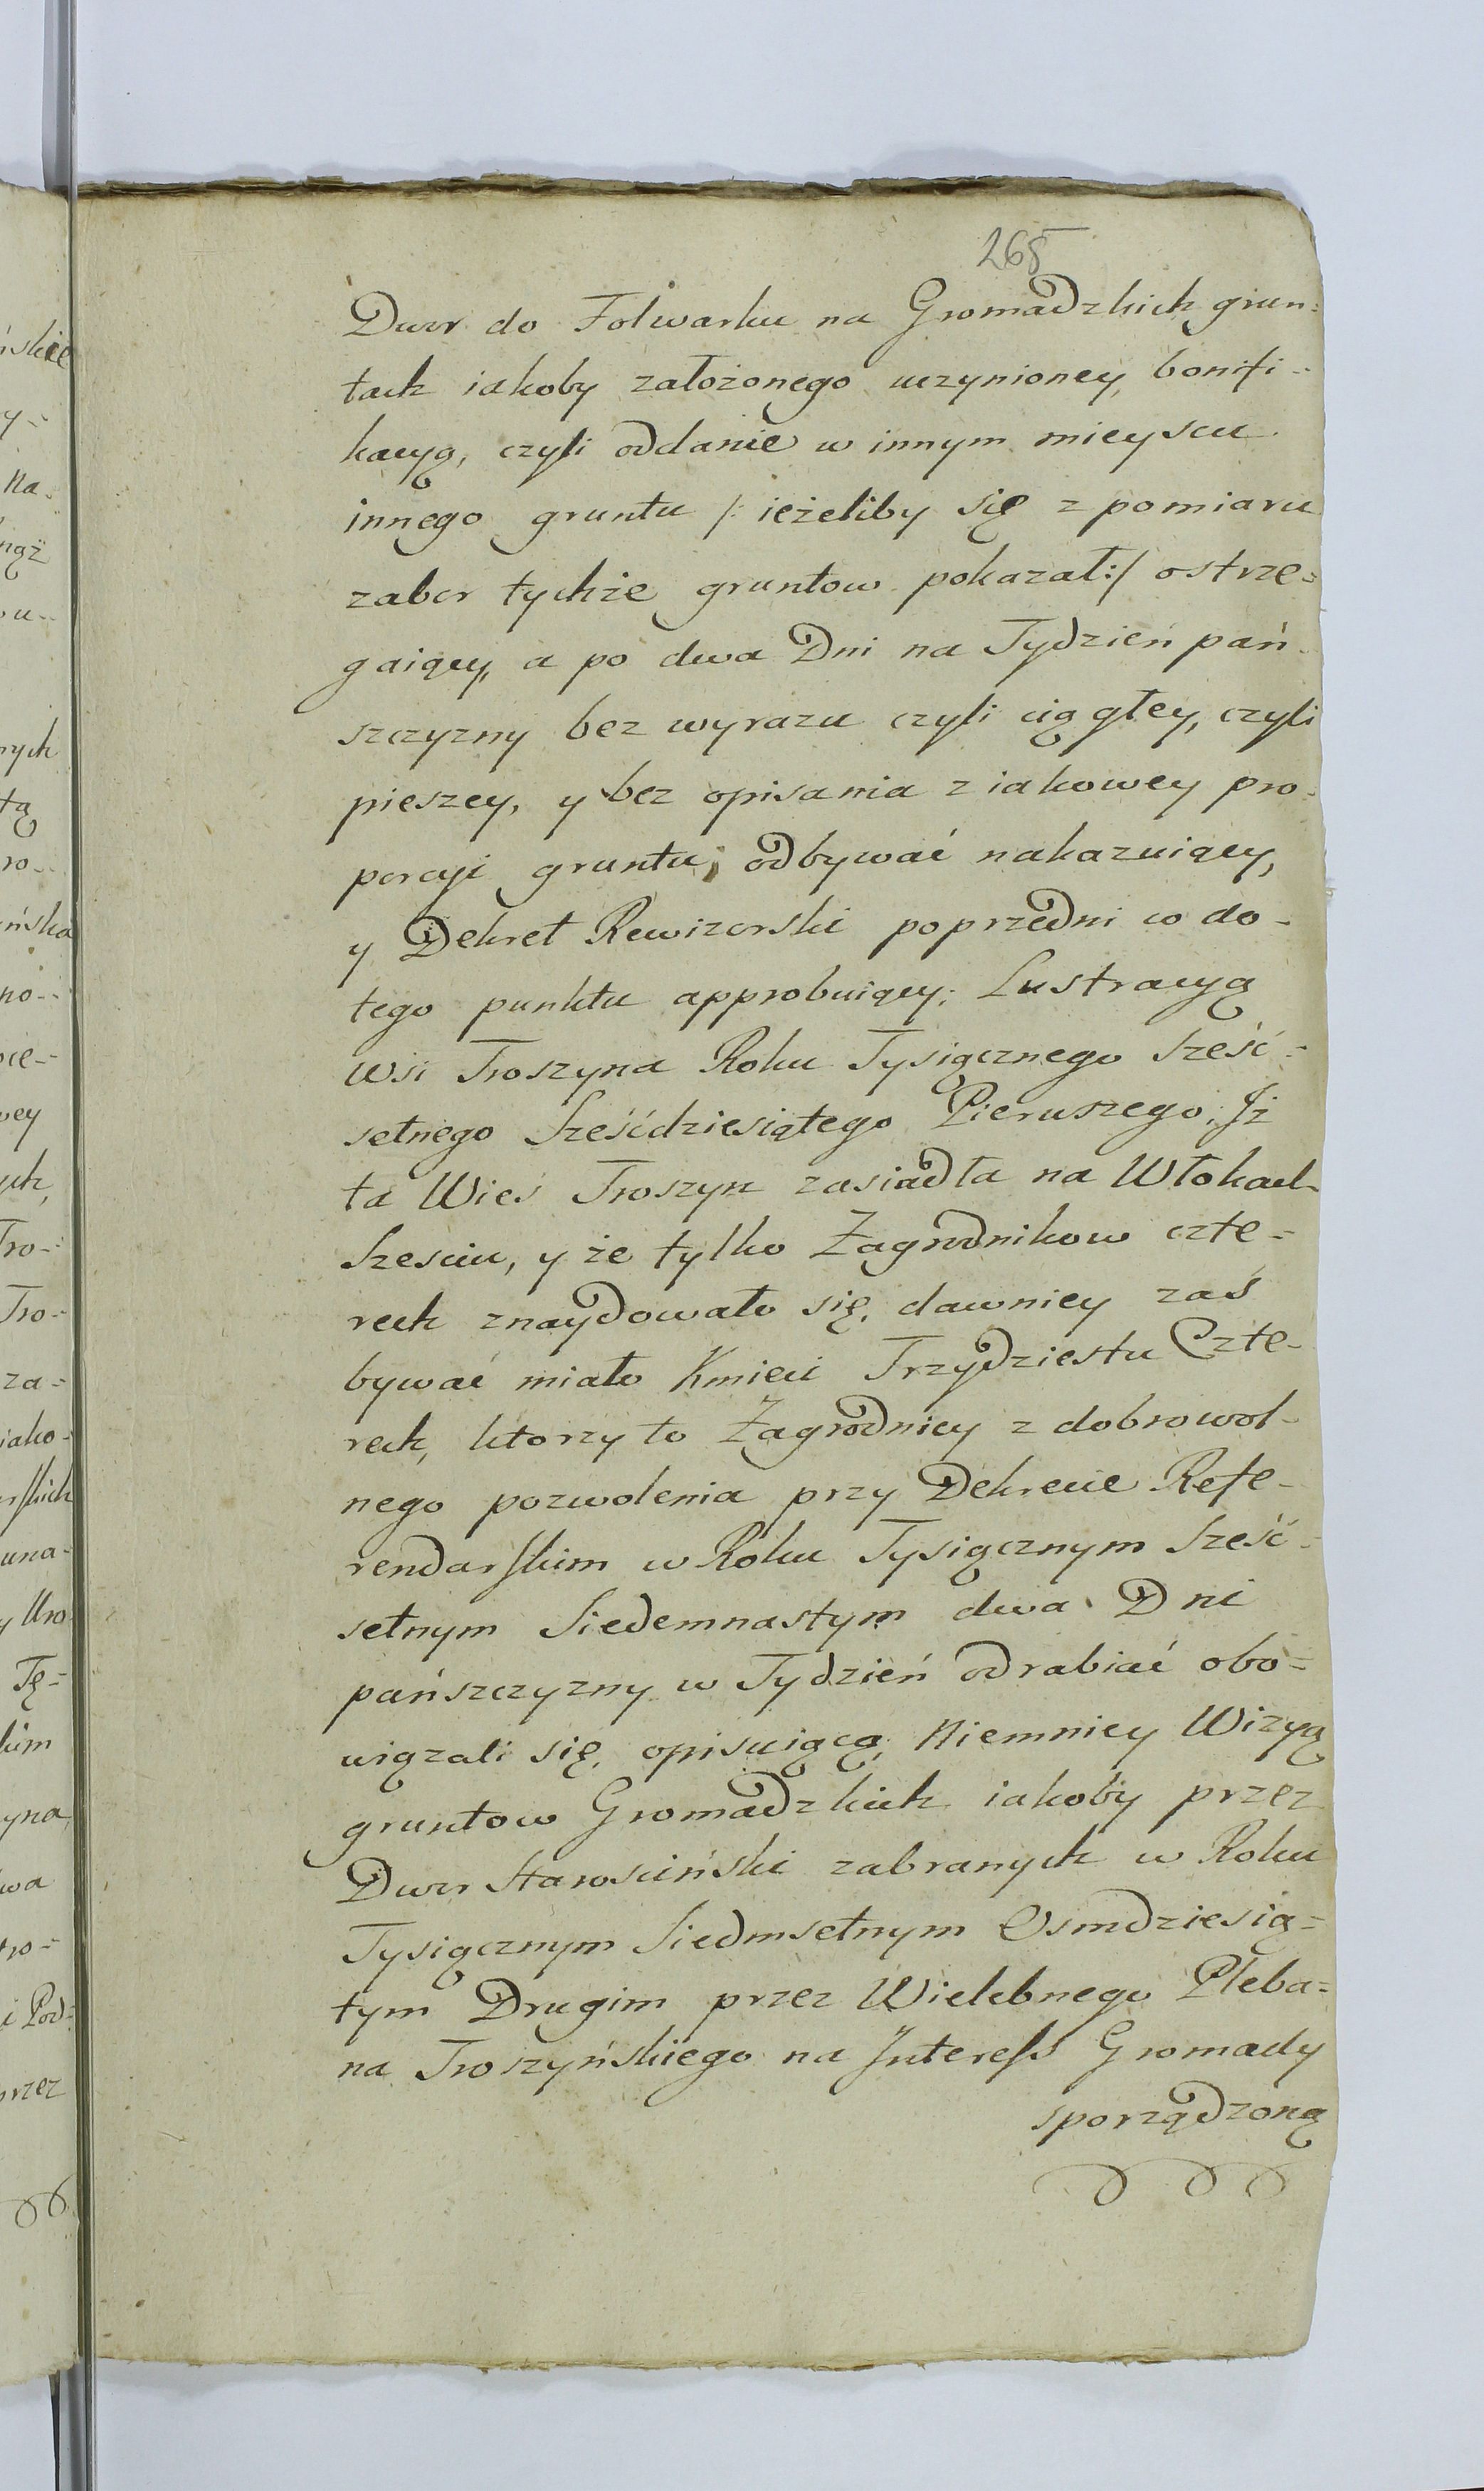 265
Dwor do Folwarku na Gromadzkich grun=
tach iakoby założonego uczynioney, bonifi=
kacyą, czyli oddanie w innym mieyscu
innego gruntu /: ieżeliby się z pomiaru
zabor tychże gruntow pokazał :/ ostrze=
gaiący, a po dwa Dni na Tydzień pań=
szczyzny bez wyrazu czyli ciągłey, czyli
pieszey, y bez opisania z iakowey pro=
porcyi gruntu, odbywać nakazuiący,
y Dekret Rewizorski poprzedni co do
tego punktu approbuiący; Lustracyą
Wsi Troszyna Roku Tysiącznego Sześć=
setnego Sześćdziesiątego Pierwszego; Jż
ta Wieś Troszyn zasiadła na Włokach
Szesciu, y że tylko Zagrodnikow czte=
rech znaydowało się, dawniey zaś
bywać miało Kmieci Trzydziestu Czte=
rech, ktorzy to Zagrodnicy z dobrowol=
nego pozwolenia przy Dekrecie Refe=
rendarskim w Roku Tysiącznym Sześć=
setnym Siedemnastym dwa Dni
pańszczyzny w Tydzień odrabiać obo=
wiązali się, opisuiącą; Niemniey Wizyą
gruntow Gromadzkich iakoby przez
Dwor Starosciński zabranych w Roku
Tysiącznym Siedmsetnym Osmdziesią=
tym Drugim przez Wielebnego Pleba=
na Troszyńskiego na Jnteress Gromady
sporządzoną
ńskie
y=
Na=
ngż
ou=
nych
tą
ro=
eńska
no=
cie=
wey
ych,
Tro=
Tro=
za=
iako=
rskich
una=
y Uro
Tę=
kim
yna,
wa
tro=
i Pod=
przez